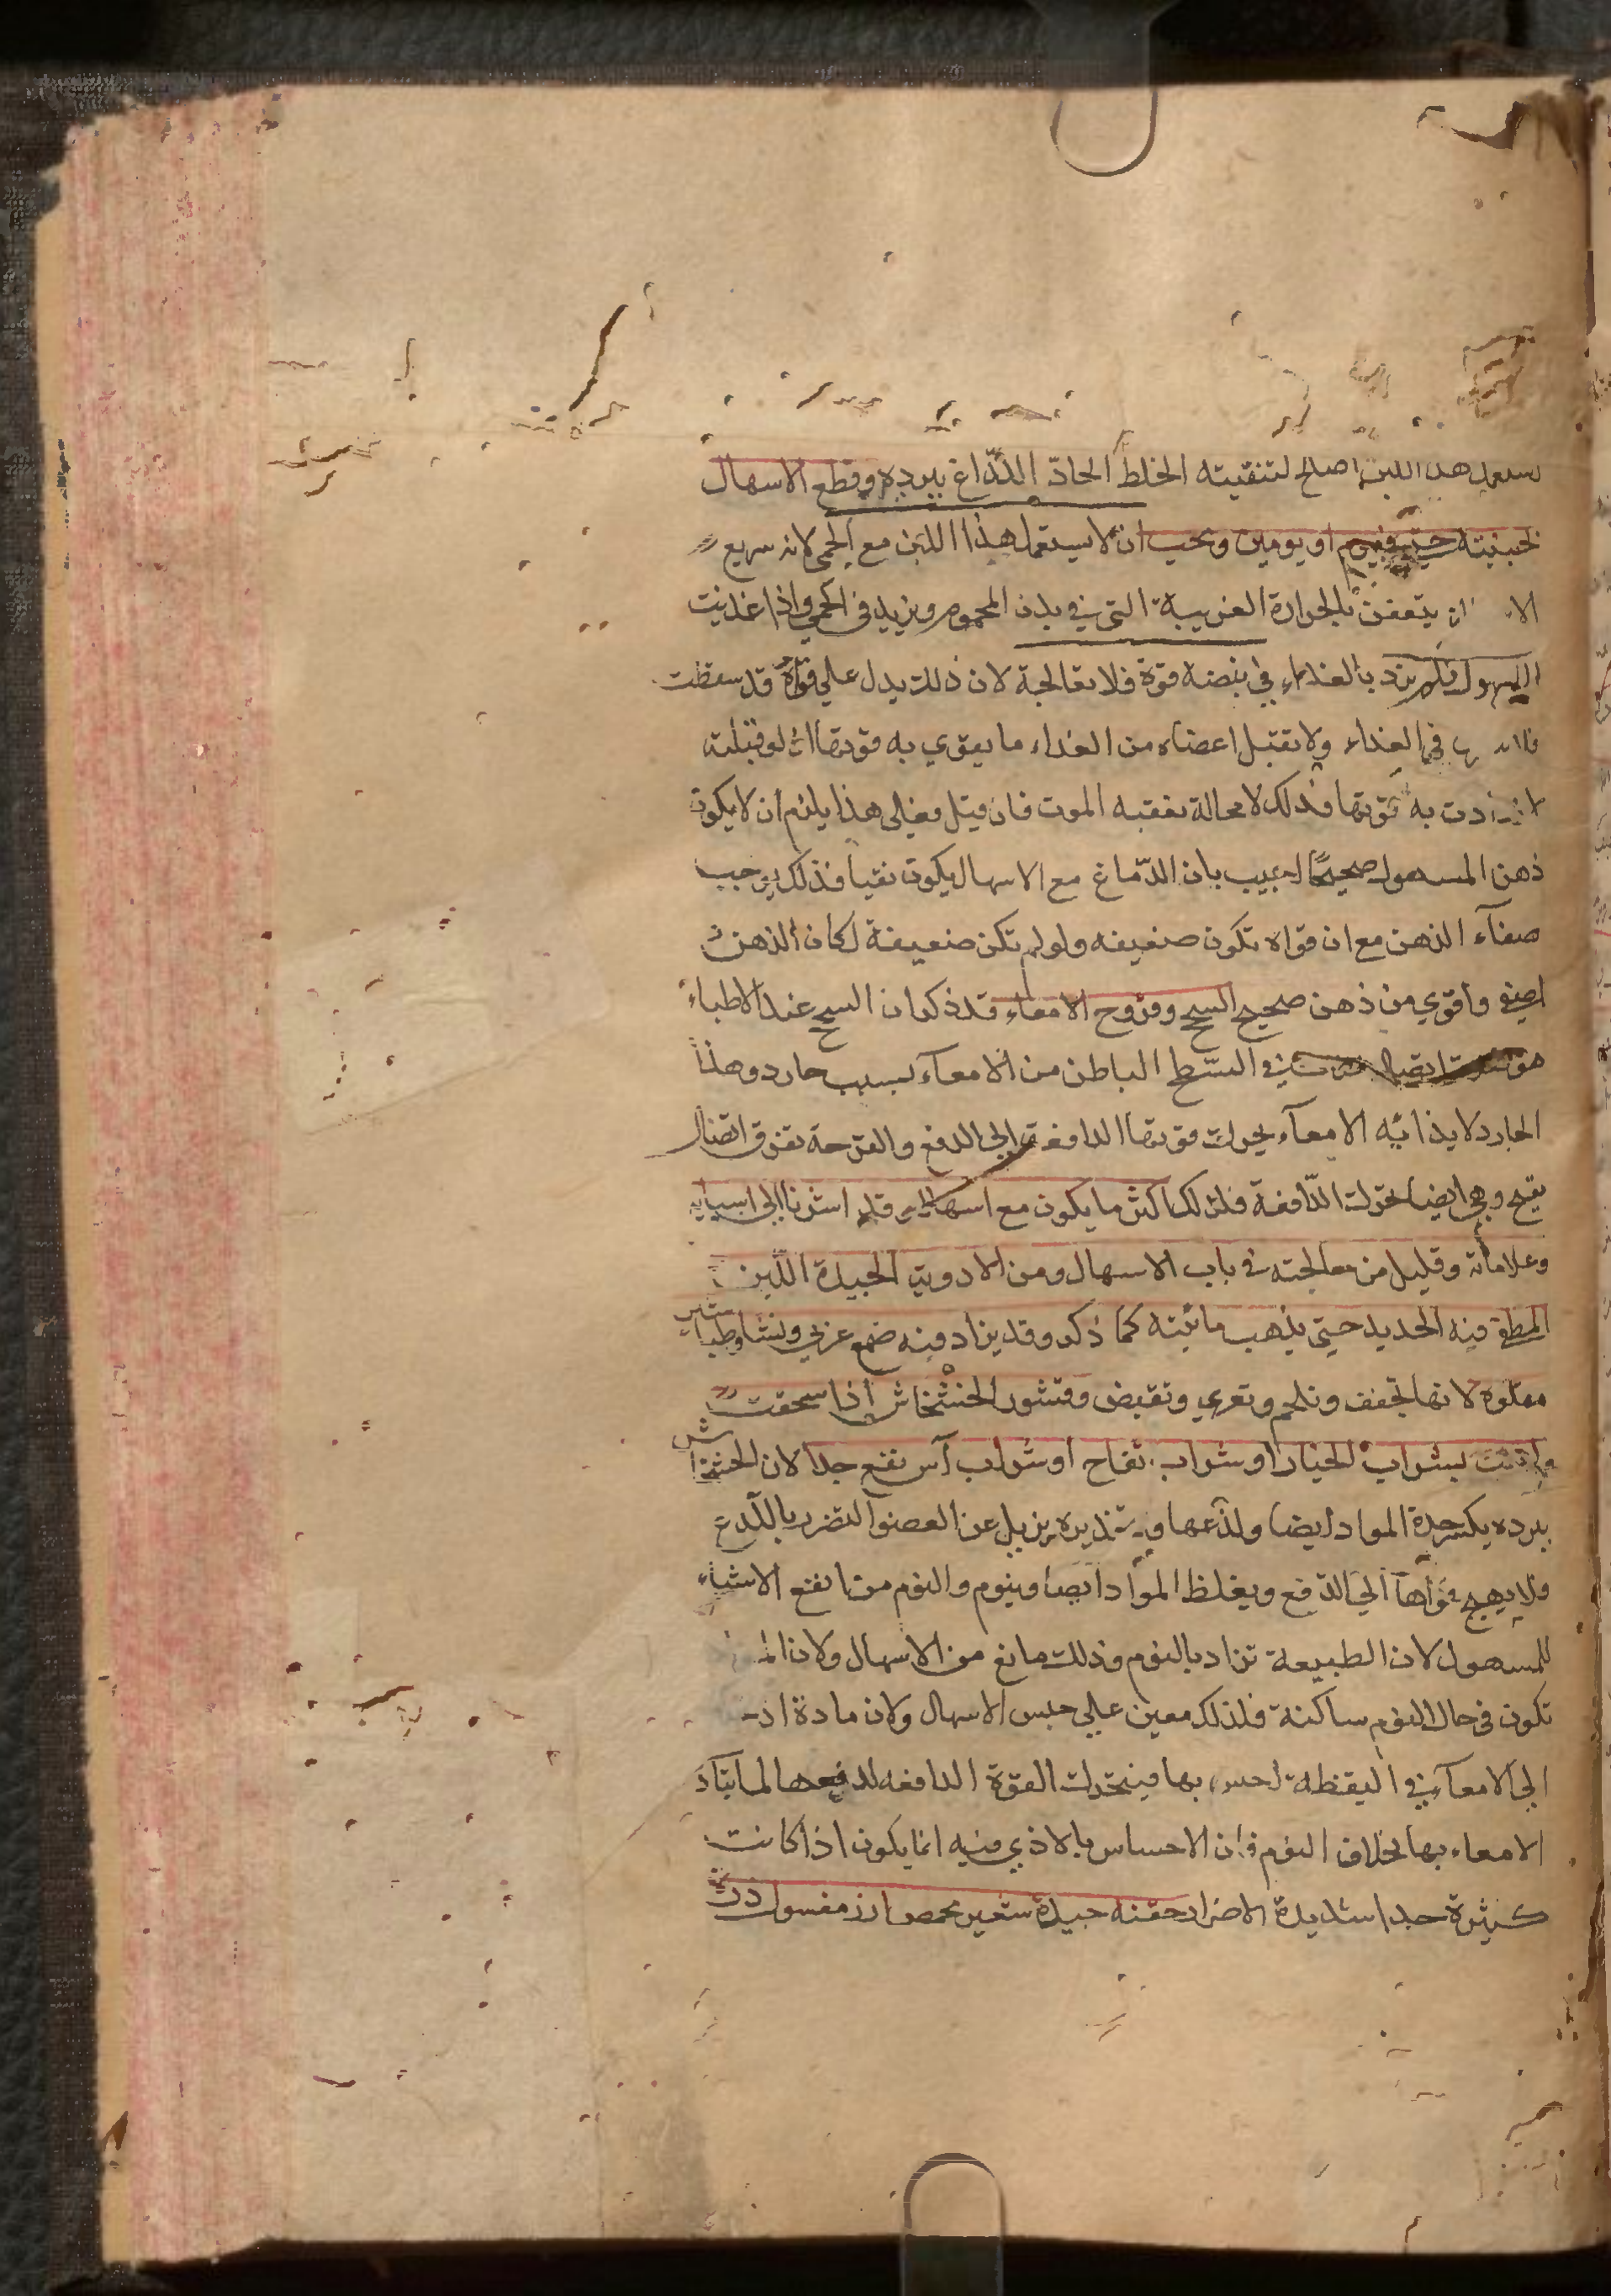 هذا اللبن اصلح لتنقيته الخلط الحادّ اللذّاغ ببرده وقطع الاسهال
لجبنيته حتى في يوم او يومين ويجب ان لا يستعمل هذا اللبن مع الحمى لانه سريع
الى ان يتعفن بالحرارة الغريبة التي في بدن المحموم ويزيد في الحمى واذا غذيت
المسهول فلم يزد بالغذاء في نبضه قوة فلا تعالجه لان ذلك يدل على قواه قد سقطت
في الغذاء ولا تقبل اعضاه من الغذاء ما يقوي به قوتها اذ لو قبلته
به قوتها فذلك لا محالة يعقبه الموت فان قيل فعلى هذا يلزم ان لا يكون
ذهن المسهول صحيحًا اجيب بان الدّماغ مع الاسهال يكون نقيا فذلك يوجب
صفآء الذهن مع ان قواه تكون ضعيفه ولو لم تكن ضعيفة لكان الذهن
اصفى واقوي من ذهن صحيح السحج وقروح الامعاء قد ذكر ان السحج عند الاطباء
هو في السّطح الباطن من الامعآء بسبب حارد وهذا
الحارد لايذائه الامعآء يحرك قوتها الدافعة الى الدفع والقرحة تفرق اتصال
بقيح وهي ايضا تحرك الدّافعة فلذلك اكثر ما يكون مع اسهال وقد اشرنا الى اسبابه
وعلاماته وقليل من معالجته في باب الاسهال ومن الادوية الجيدة اللبن
المطفى فيه الحديد حتى يذهب مائيته كما ذكر وقد يزاد فيه صمغ عربي ونشا وطباشير
مقلوة لانها تجفف وتلحم وتغري وتقبض وقشور الخشخاش اذا سحقت
بشراب الخيار او شراب تفاح او شراب آس نفع جدا لان الخشخاش
ببرده يكسر حدة المواد ايضا ولذعها و يزيل عن العضو التضرر باللدع
فلا يهيج قواها الى الدفع ويغلظ الموآد ايضا وينوم والنوم من انفع الاشياء
للمسهول لان الطبيعة تزاد بالنوم وذلك مانع من الاسهال ولان
تكون في حال النوم ساكنة فلذلك معين على حبس الاسهال ولان مادة
الى الامعآء في اليقظة احس بها فيتحرك القوة الدافعه لدفعها لما يتآذ
الامعاء بها بخلاف النوم فان الاحساس بالاذي فيه انما يكون اذا كانت
كثيرة جدا شديدة الاضرار حقنه جيدة شعير محمص ارز مغسول